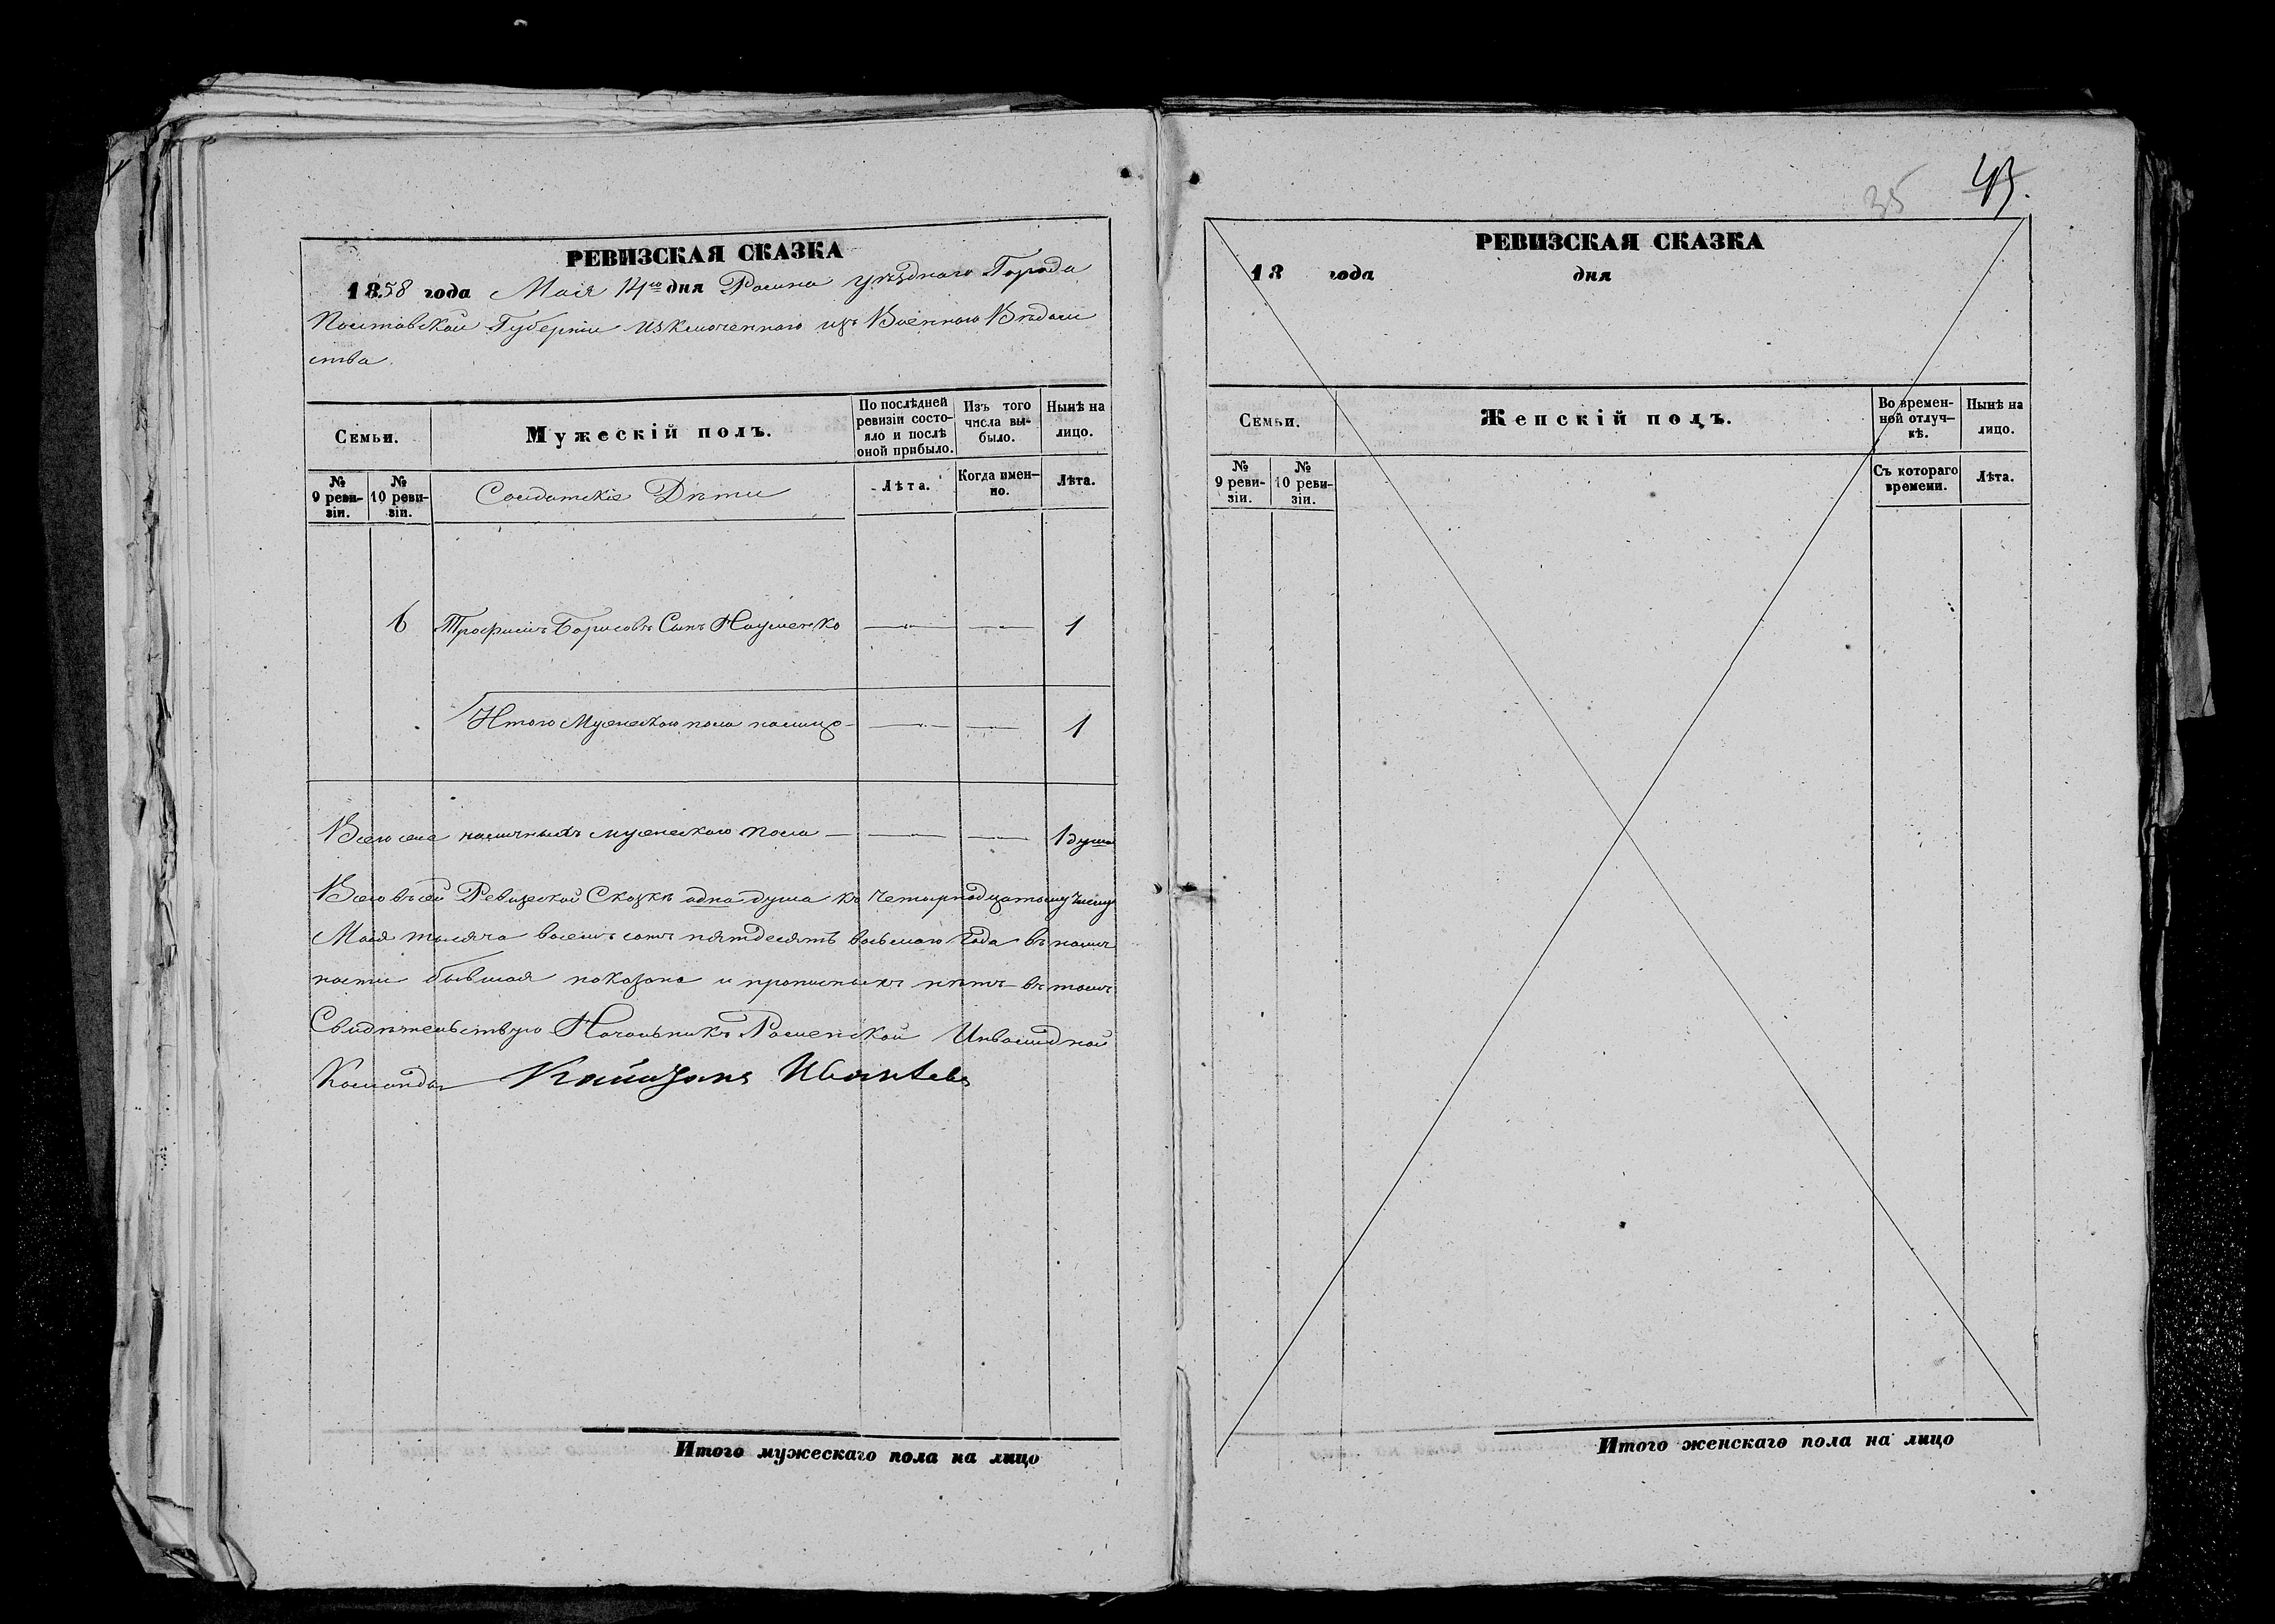 РЕВИЗСКАЯ СКАЗКА
1858 года Маія 14го дня Ромна уѣзднаго Города
Полтавской Губерніи изключеннаго изъ Военнаго Вѣдом
ства.
Семьи.
Мужескій полъ.
По послѣдней ревизіи состояло и послѣ оной прибыло.
Изъ того числа выбыло.
Нынѣ на лицо.
№ 9 ревизіи.
№ 10 ревизіи.
Солдатскіе Дѣти
Лѣта.
Когда имен-но.
Лѣта.
6 Трофимъ Борисовъ Сынъ Науменко — — 1
Итого Мужескаго пола налицо — — 1
Всего же наличныхъ мужескаго пола — — — 1 душа
Всего въ сей Ревизской Сказкѣ одна душа къ четырнадцатому числу
Маія тысяча восемь сотъ пятдесятъ восьмаго Года въ налич
ности бывшая показана и прописныхъ нѣтъ въ томъ
Свидѣтельствую Начальникъ Роменской Инвалидной
Команды
Итого мужескаго пола на лицо
35 43.
РЕВИЗСКАЯ СКАЗКА
18 года дня
Семьи.
Женскій полъ.
Во времен-ной отлуч-кѣ.
Нынѣ на лицо.
№ 9 реви-зіи.
№ 10 реви-зіи.
Съ котораго времени.
Лѣта.
Итого женскаго пола на лицо